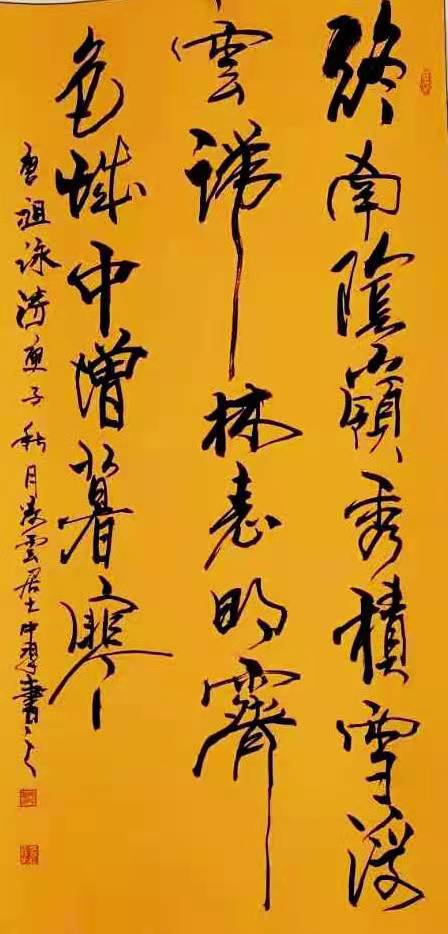 終南陰嶺秀積雪浮
雲端林表明霽
色城中增暮寒
唐祖詠詩庚子秋月凌雲居士中書之